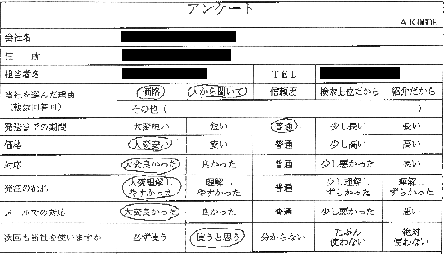 アンケート
会社名
住 所
担当者名 TEL
当社を選んだ理由 価格 人から聞いて 信頼度 検索上位だから 紹介だから
(複数回答可) その他 ( )
発送までの期間 大変短い 短い 普通 少し長い 長い
価格 大変安い 安い 普通 少し高い 高い
対応 大変良かった 良かった 普通 少し悪かった 悪い
発注の流れ 大変理解し 理解し 普通 少し理解し 理解し
やすかった やすかった ずらかった ずらかった
メールでの対応 大変良かった 良かった 普通 少し悪かった 悪い
次回も当社を使いますか 必ず使う 使うと思う 分からない たぶん 絶対
使わない 使わない